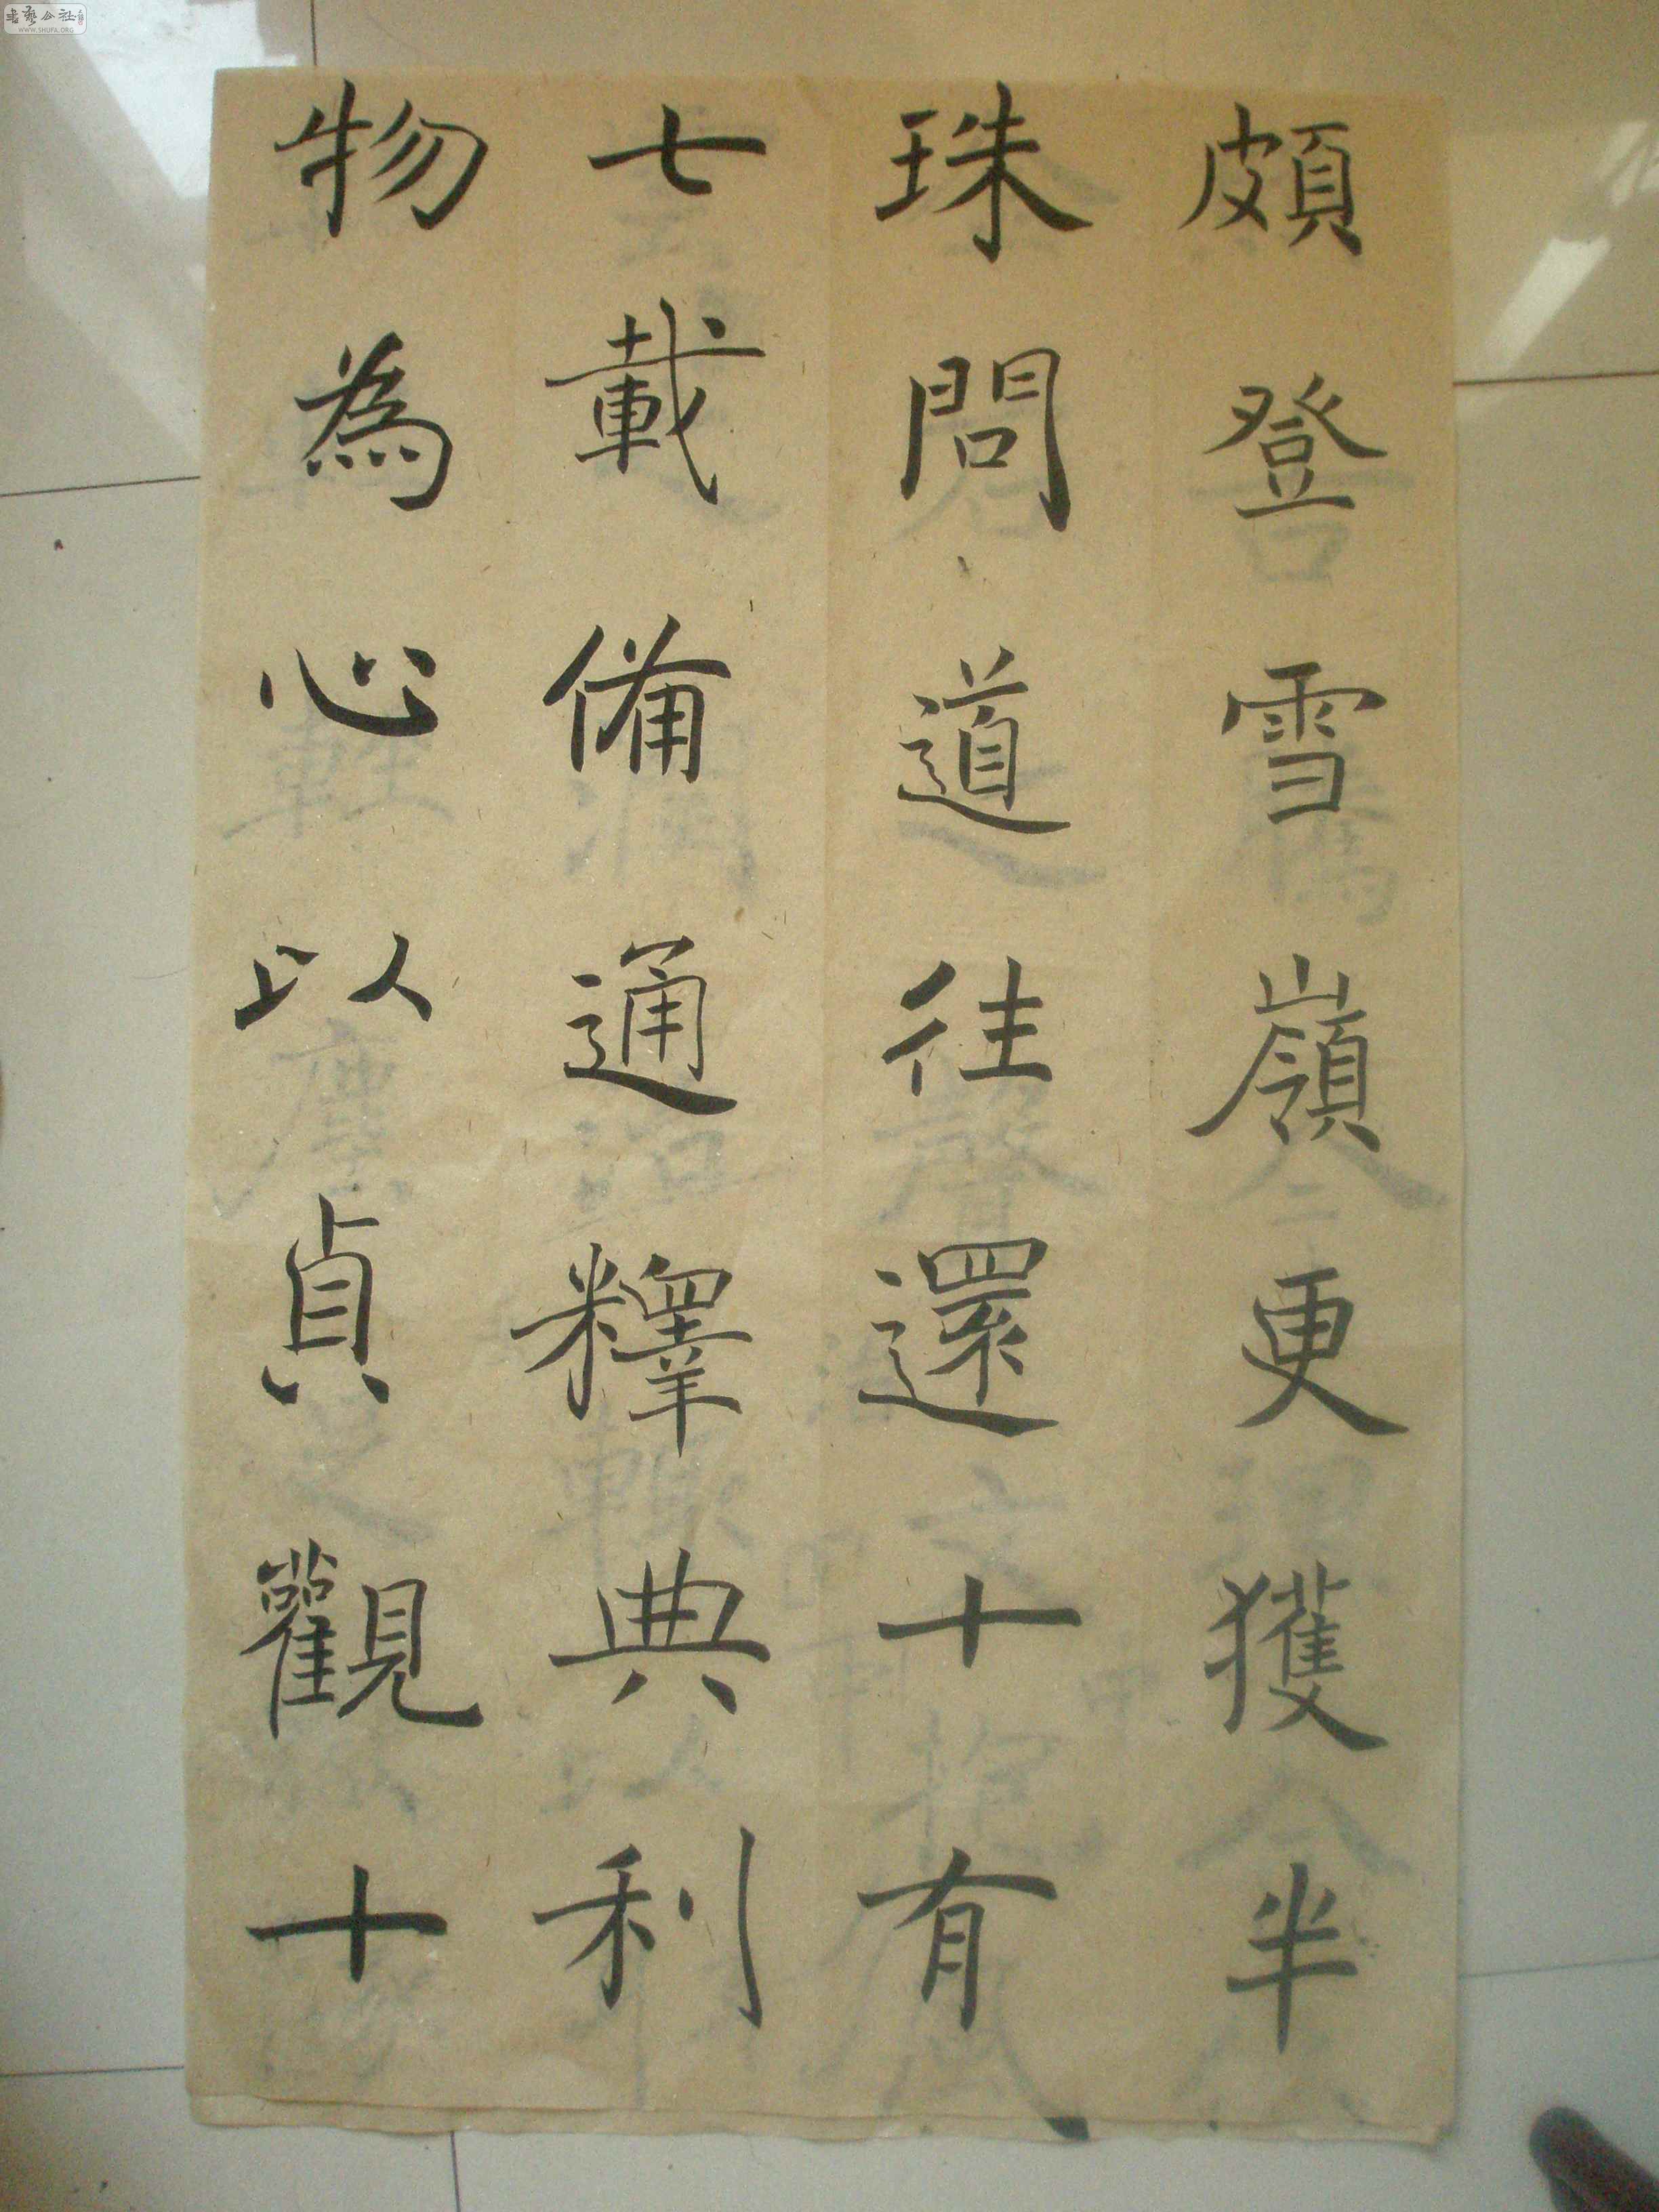 頗登雪嶺更獲半
珠問道往還十有
七載備通釋典利
物為心以貞觀十
書藝公社
WWW.SHUFA.ORG